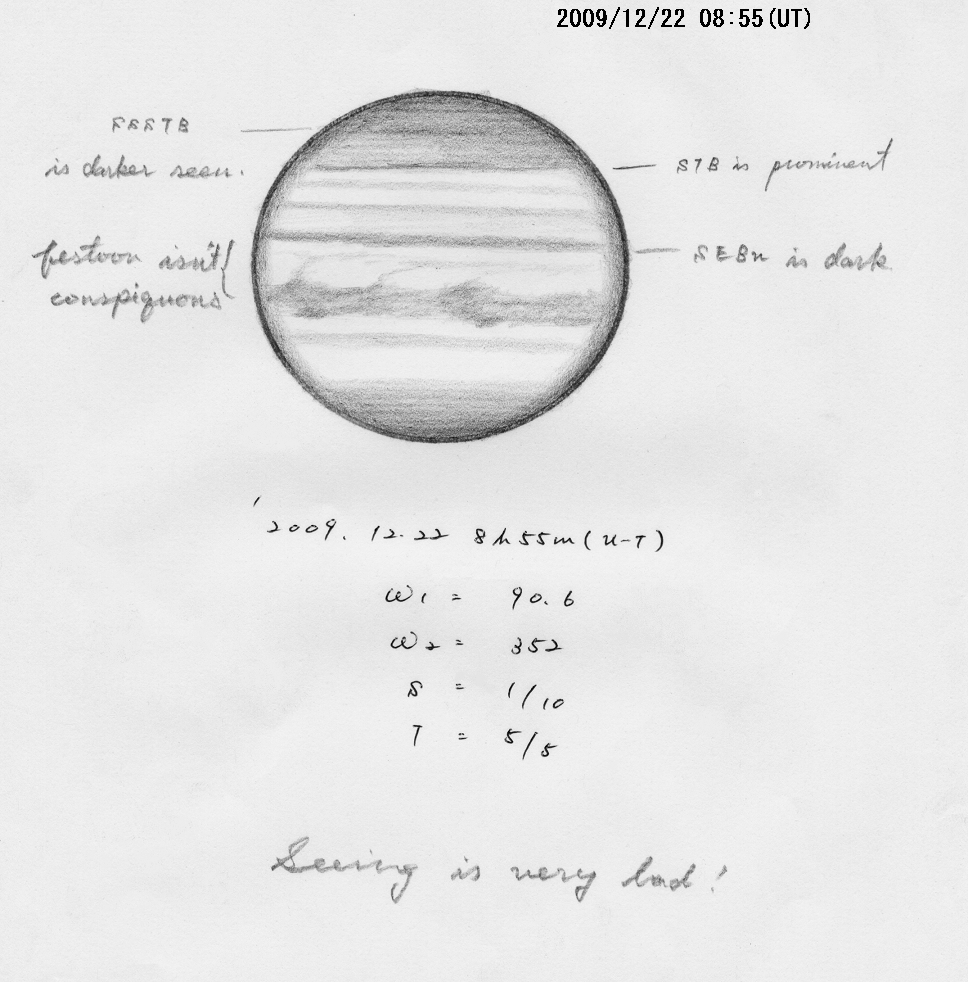 2009/12/22 08:55(UT)
SSSTB
is darker seen.
STB is prominent
festoon isn't
conspiquons
SEBn is dark
2009. 12. 22 8h55m (U-T)
ω1 = 90.6
ω2 = 352
S = 1/10
T = 5/5
Seeing is very bad!